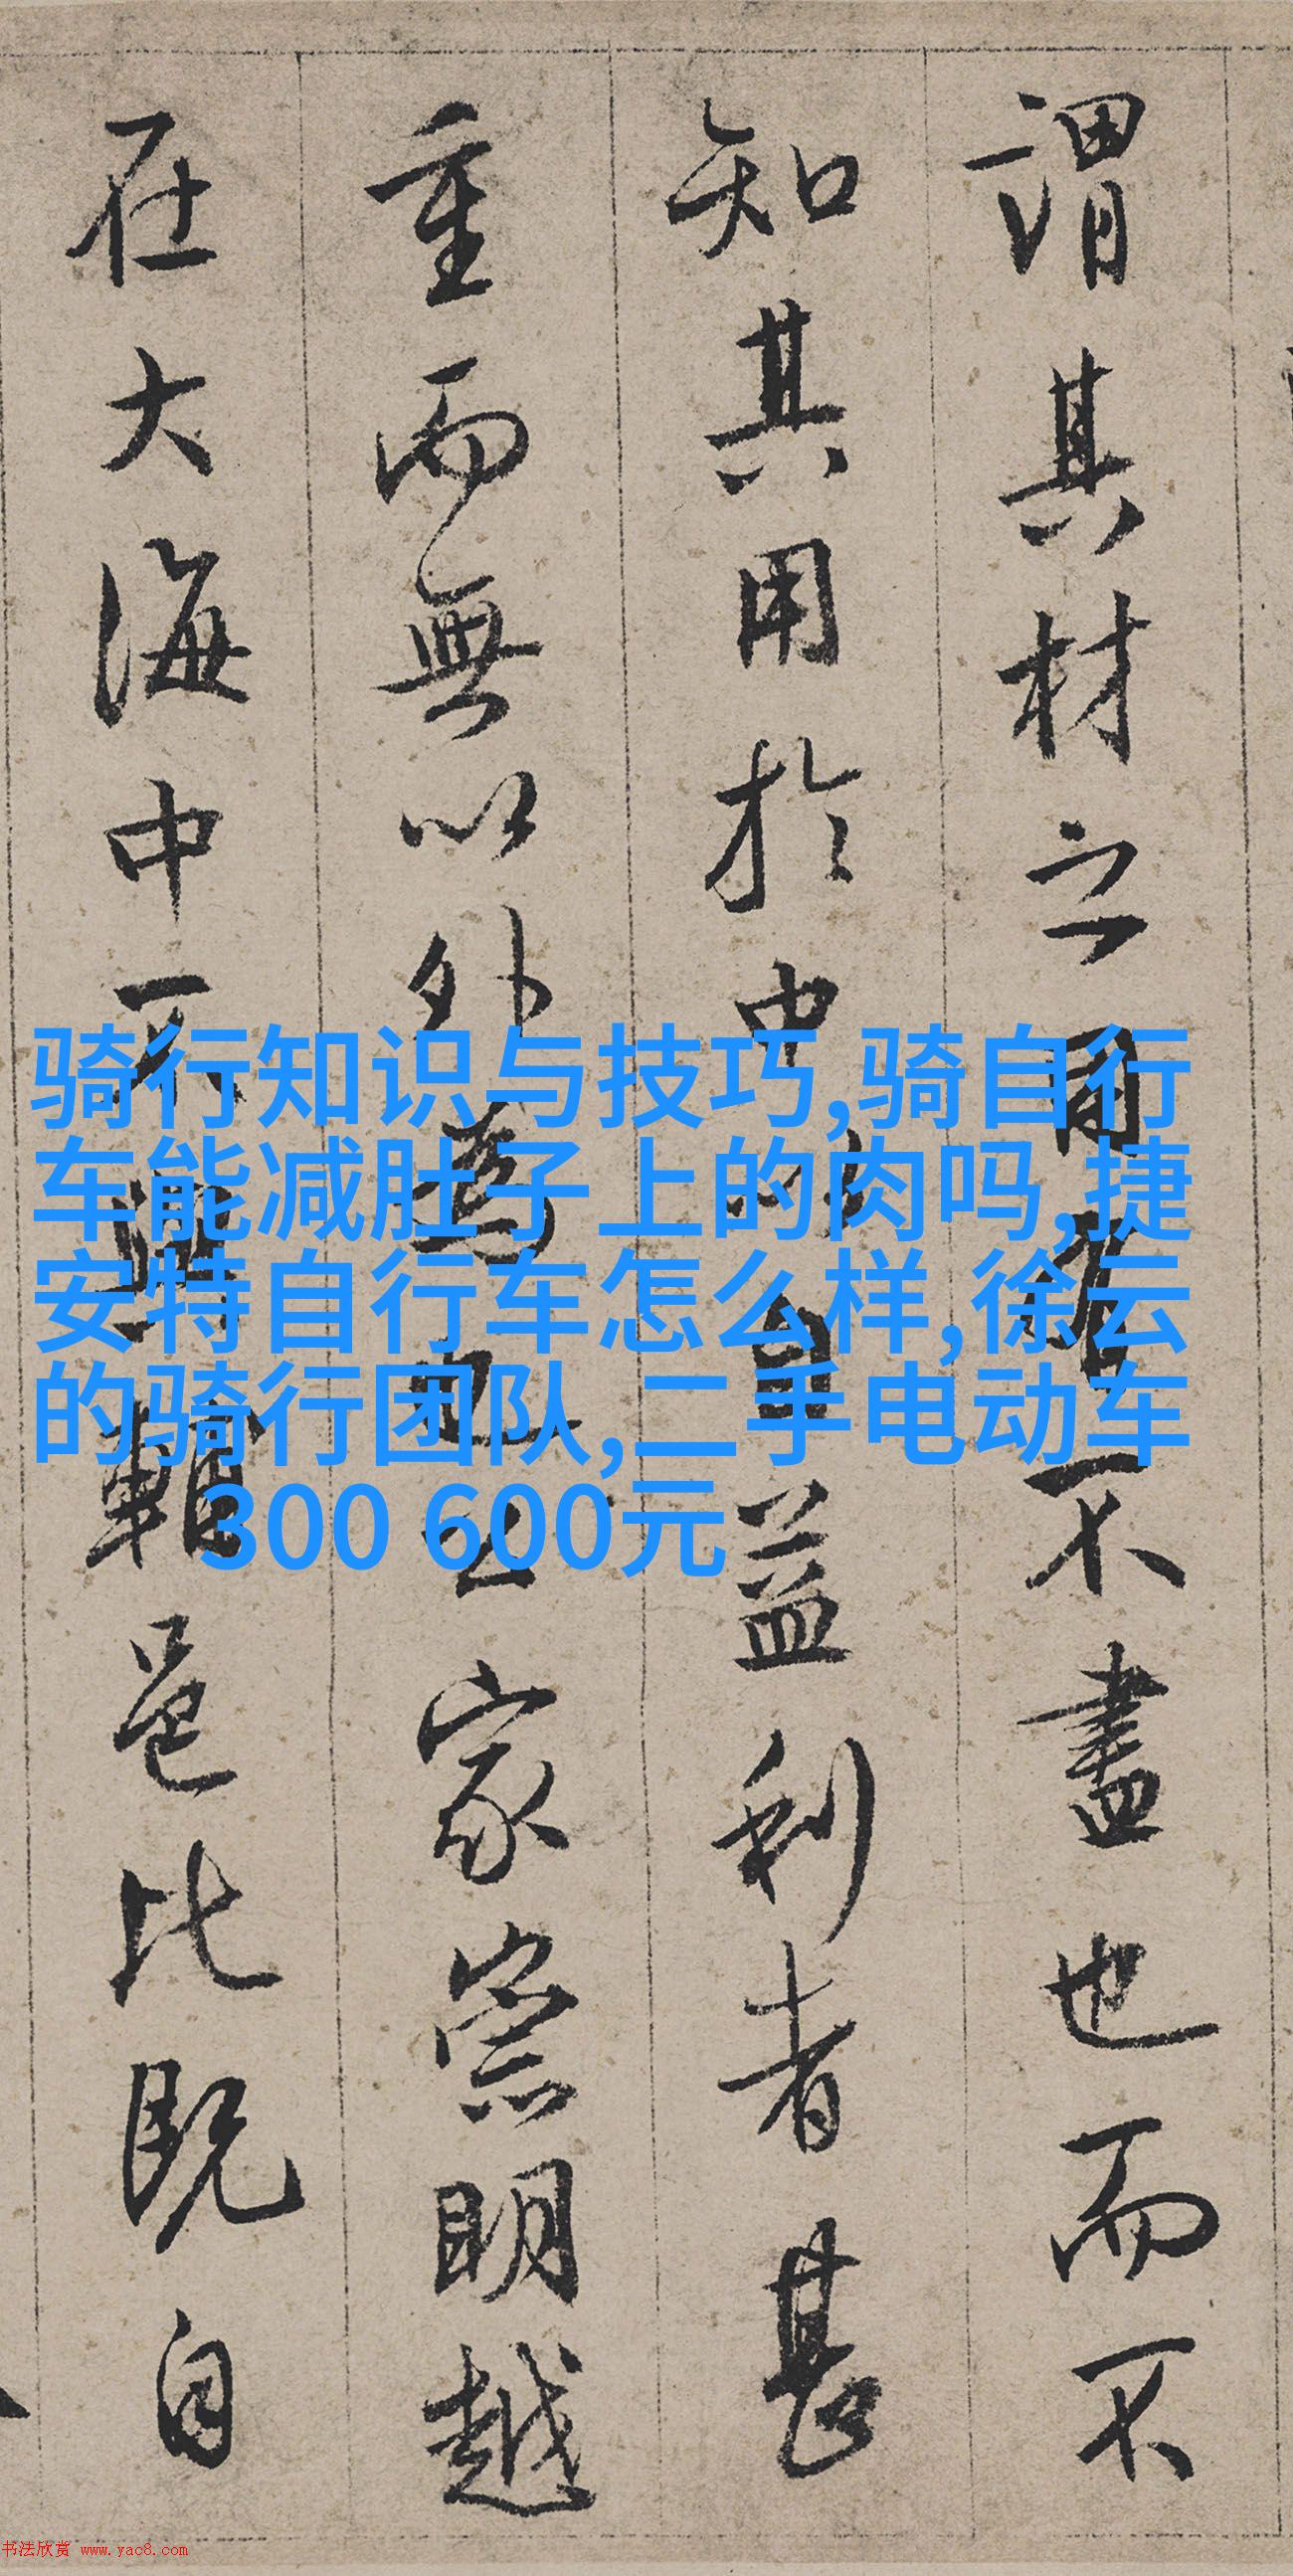 謂其材之用有不盡也而不
知其用於中以自益利者甚
重而無以外為也公家崇明越
在大海中不與輔邑比既自
骑行知识与技巧,骑自行
车能减肚子上的肉吗,捷
安特自行车怎么样,徐云
的骑行团队,二手电动车
300 600元
书法欣赏 www.yac8.com